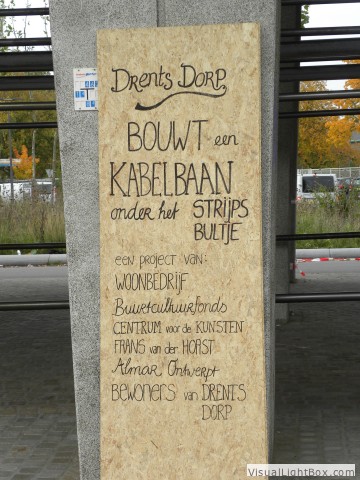 Drents Dorp
BOUWT een
KABELBAAN
onder het STRIJPS
BULTJE
een project van:
WOONBEDRIJF
Buurtcultuurfonds
CENTRUM voor de KUNSTEN
FRANS van der HORST
Almar Ontwerpt
BEWONERS van DRENTS
DORP
VisualLightBox.com